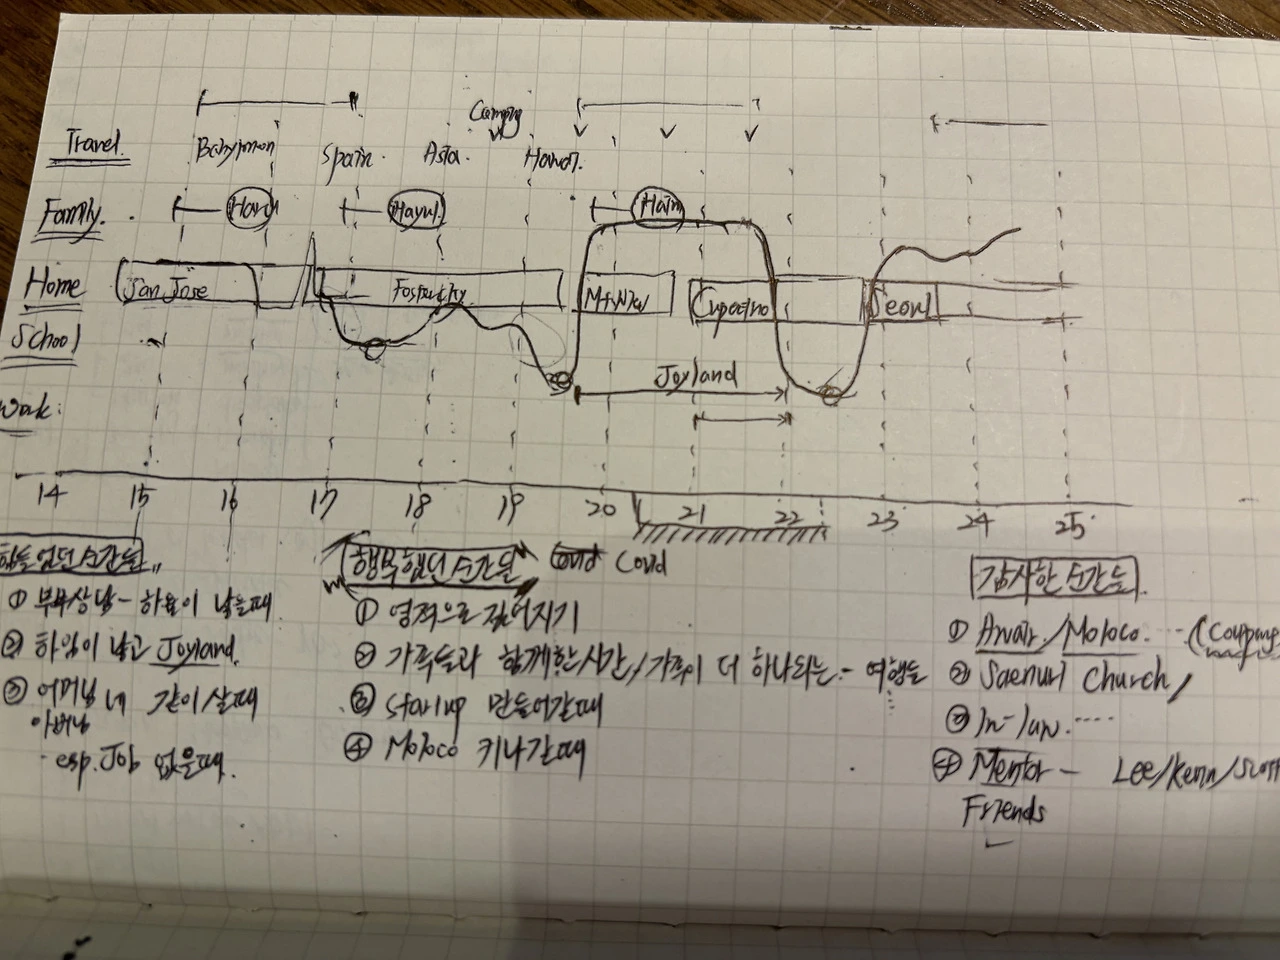 Camping
Travel. Babymoon Spain. Asia. Hawaii.
Family. Hayul. Haim
Home San Jose Foster city Mt.View Cupertino Seoul
School
Joyland
Work:
14 15 16 17 18 19 20 21 22 23 24 25
힘들었던 순간들
행복했던 순간들
Covid
감사한 순간들
① 부부상담 - 하율이 낳을때
② 하임이 낳고 Joyland.
③ 어머님 네 같이 살때
아버님
esp. Job 없을때.
① 영적으로 깊어지기
② 가족들과 함께한 시간/가족이 더 하나되는 - 여행들
③ startup 만들어갈때
④ Moloco 키나갈때
① Awair/Moloco. (Coupang
② Saenuri Church,
③ In-law.
④ Mentor - Lee/Kenn/Scott
Friends